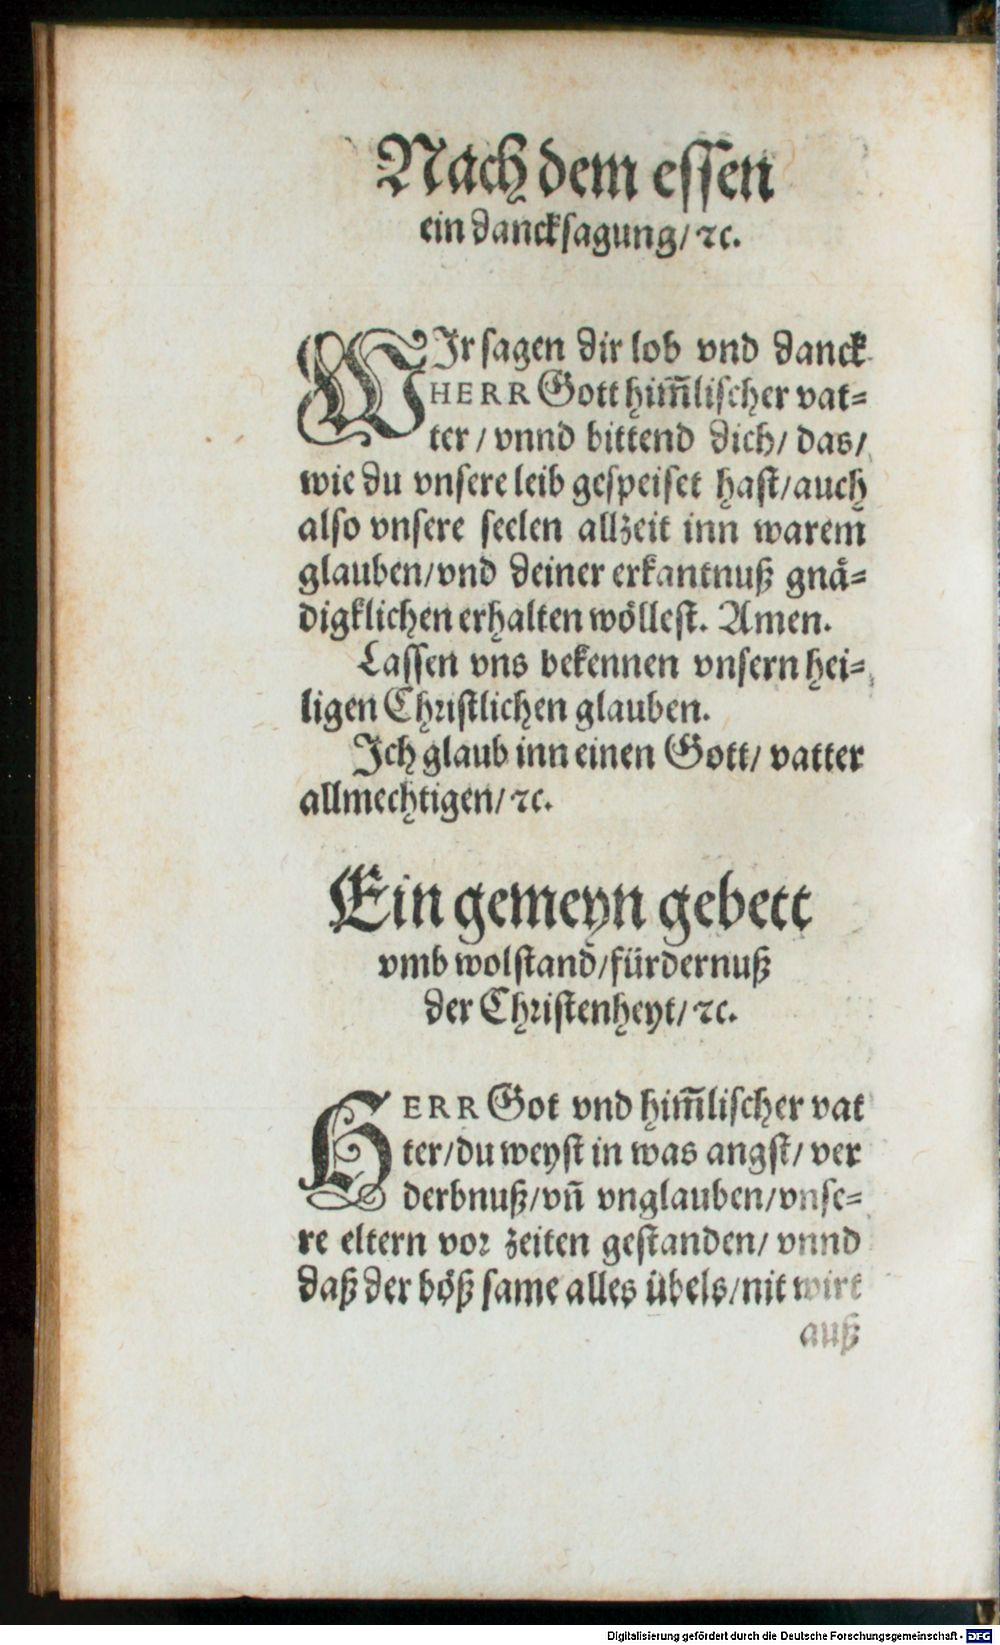 Nach dem essen
ein dancksagung/ ꝛc.
WIr sagen dir lob vnd danck
HERR Gott him̃lischer vat=
ter / vnnd bittend dich/ das/
wie du vnsere leib gespeiset hast/auch
also vnsere seelen allzeit inn warem
glauben/vnd deiner erkantnuß gnaͤ=
digklichen erhalten woͤllest. Amen.
Lassen vns bekennen vnsern hei=
ligen Christlichen glauben.
Ich glaub inn einen Gott/ vatter
allmechtigen/ ꝛc.
Ein gemeyn gebett
vmb wolstand/fürdernuß
der Christenheyt/ ꝛc.
HERR Got vnd him̃lischer vat
ter/du weyst in was angst/ ver
derbnuß/vñ vnglauben/vnse=
re eltern vor zeiten gestanden/ vnnd
daß der boͤß same alles übels/nit wirt
auß
Digitalisierung gefördert durch die Deutsche Forschungsgemeinschaft - DFG